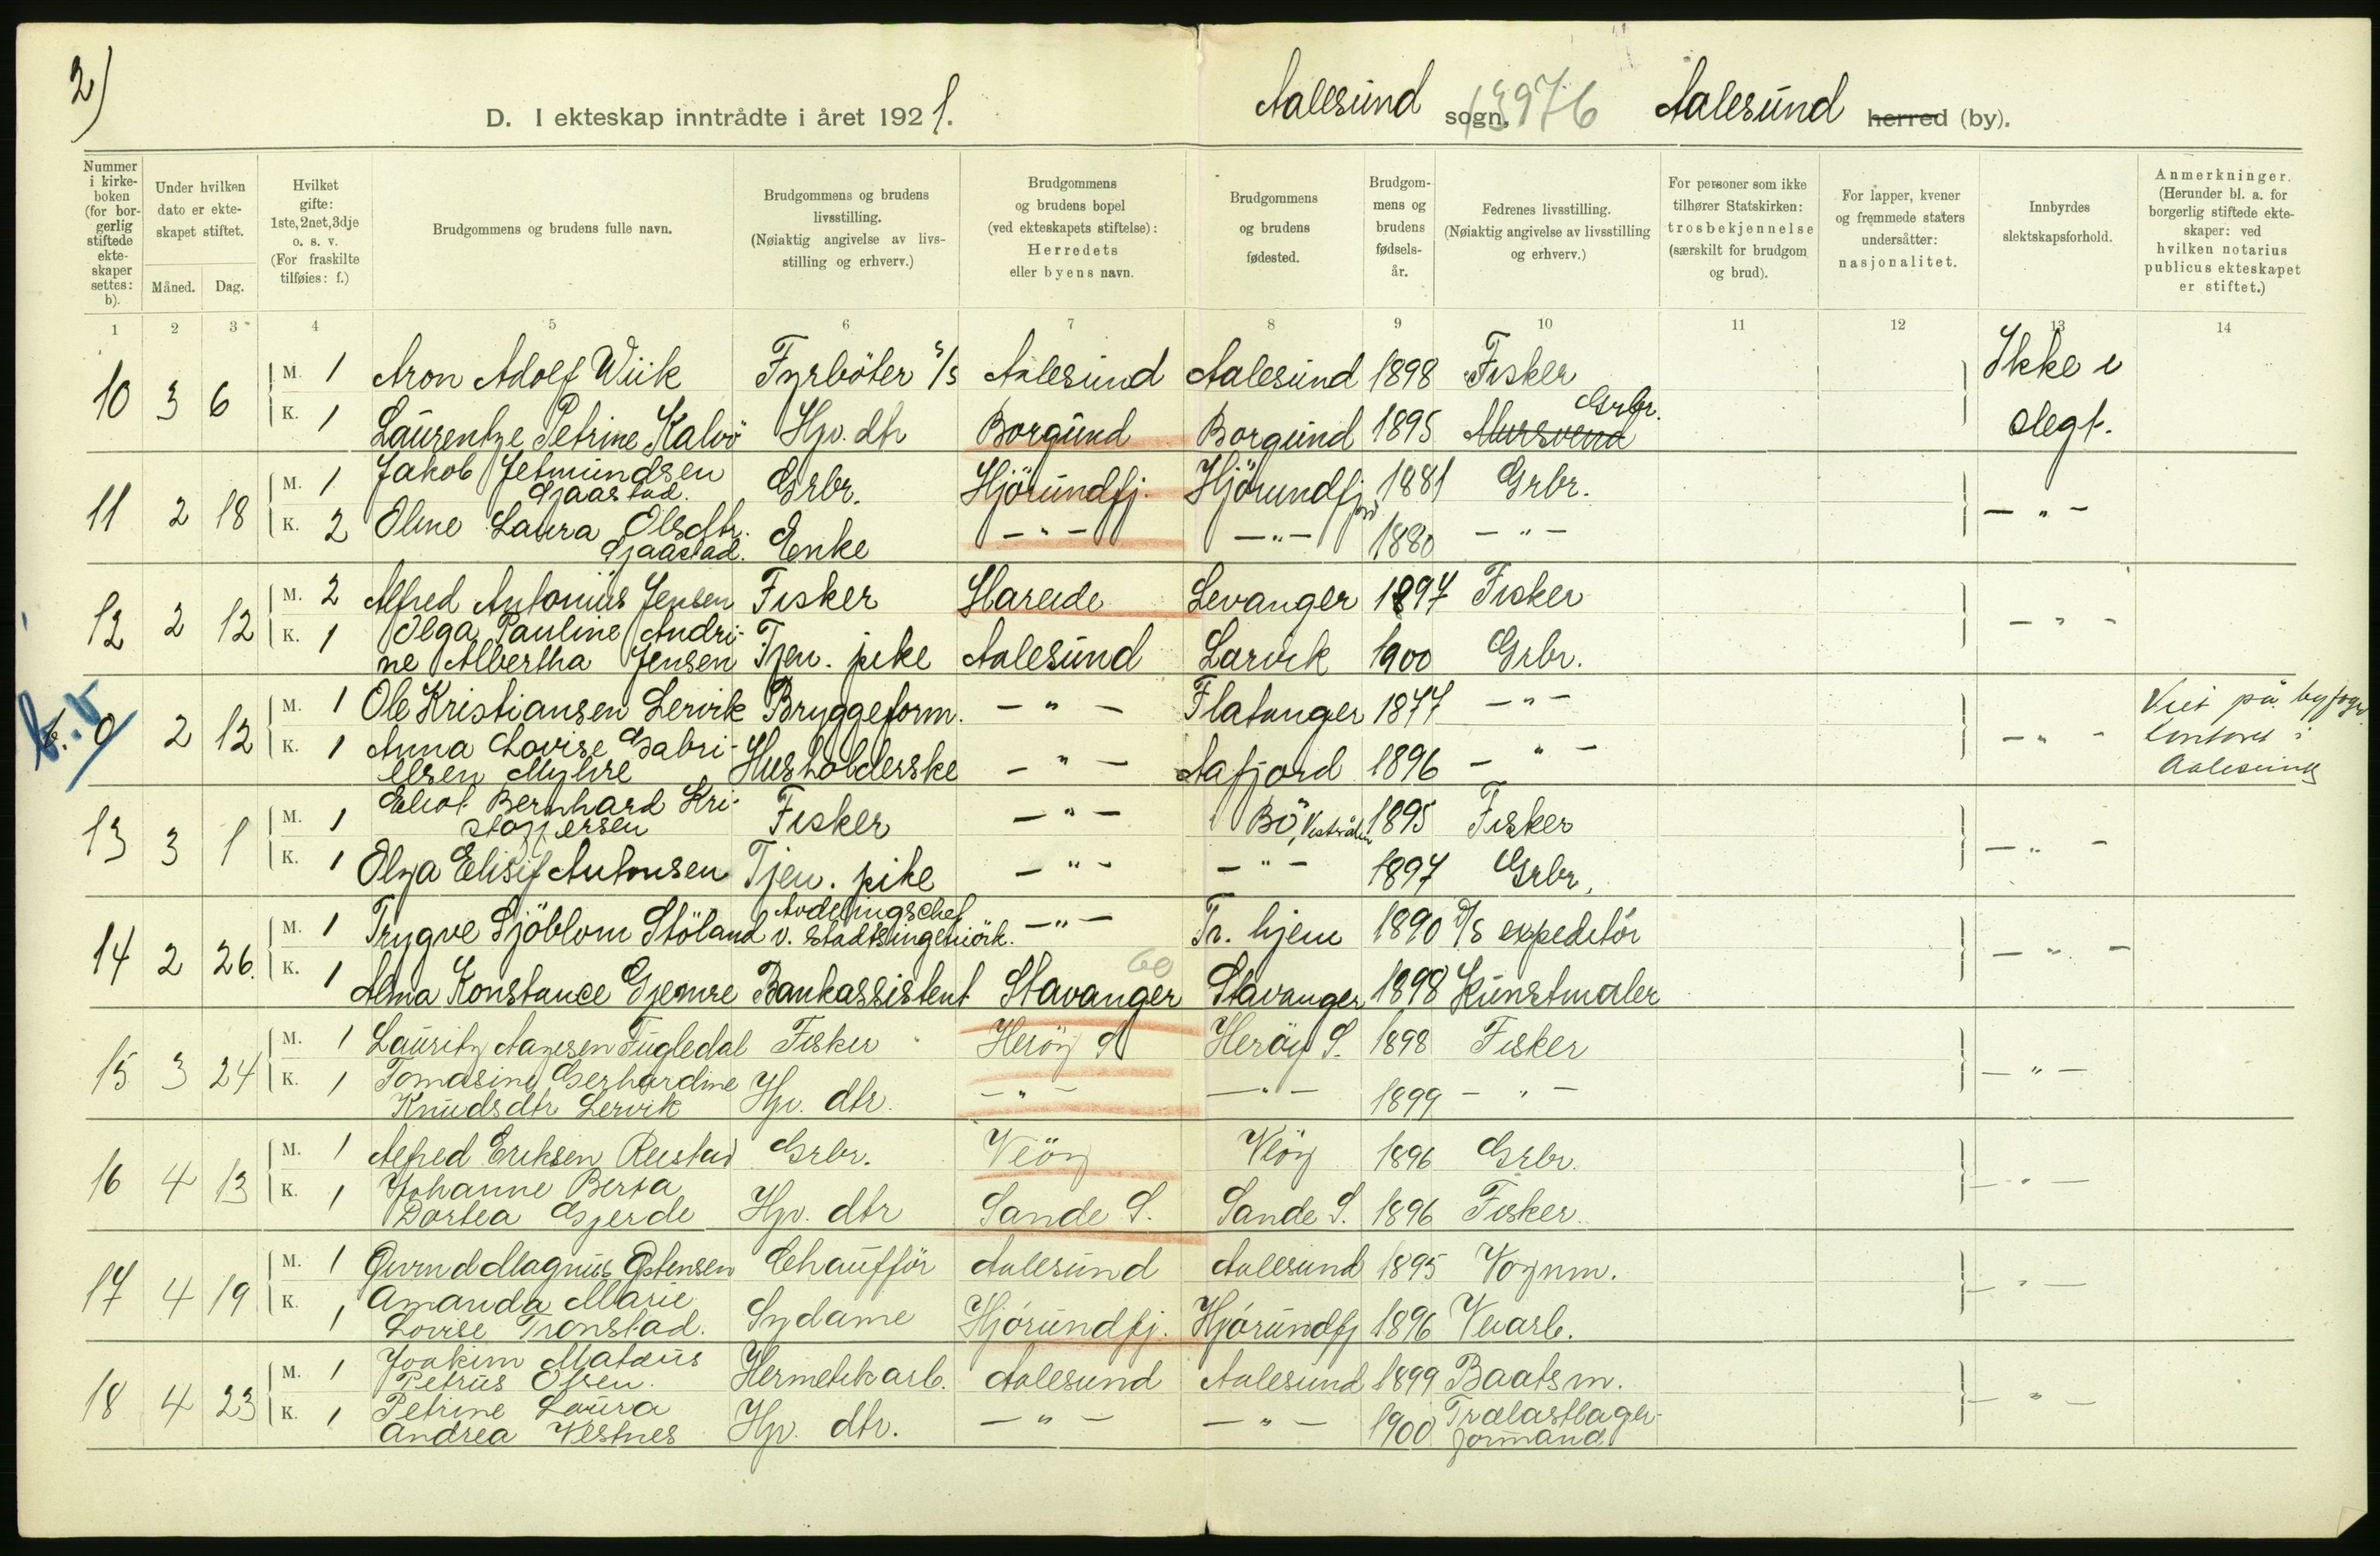 2)
D. I ekteskap inntrådte i året 1921.
Aalesund sogn, 13976 Aalesund herred (by).
Nummer i kirkeboken (for borgerlig stiftede ekteskaper settes: b).
Under hvilken dato er ekteskapet stiftet.
Måned. Dag.
Hvilket gifte: 1ste, 2net, 3dje o. s. v. (For fraskilte tilføies: f.)
Brudgommens og brudens fulle navn.
Brudgommens og brudens livsstilling. (Nøiaktig angivelse av livsstilling og erhverv.)
Brudgommens og brudens bopel (ved ekteskapets stiftelse): Herredets eller byens navn.
Brudgommens og brudens fødested.
Brudgommens og brudens fødselsår.
Fedrenes livsstilling. (Nøiaktig angivelse av livsstilling og erhverv.)
For personer som ikke tilhører Statskirken: trosbekjennelse (særskilt for brudgom og brud).
For lapper, kvener og fremmede staters undersåtter: nasjonalitet.
Innbyrdes slektskapsforhold.
Anmerkninger. (Herunder bl. a. for borgerlig stiftede ekteskaper: ved hvilken notarius publicus ekteskapet er stiftet.)
1 2 3 4 5 6 7 8 9 10 11 12 13 14
10 3 6 M. 1 Aron Adolf Wiik Fyrböter s/s Aalesund Aalesund 1898 Fisker Ikke i slegt.
K. 1 Laurentze Petrine Kalvö Hjv. dtr Borgund Borgund 1895 Mursvend Grbr.
11 2 18 M. 1 Jakob Jetmundsen Gjaastad. Grbr. Hjörundfj. Hjörundfjord 1881 Grbr. - " -
K. 2 Oline Laura Olsdtr. Gjaastad. Enke - " - - " - 1880 - " -
12 2 12 M. 2 Alfred Antonius Jensen Fisker Hareide Levanger 1897 Fisker - " -
K. 1 Olga Pauline Andrine Albertha Jensen Tjen. pike Aalesund Larvik 1900 Grbr.
b. 0 2 12 M. 1 Ole Kristiansen Lervik Bryggeform. - " - Flatanger 1877 - " - - " - Viet på byfogd kontoret i Aalesund
K. 1 Anna Lovise Gabrielsen Myhre Husholderske - " - Aafjord 1896 - " -
13 3 1 M. 1 Eliot Bernhard Kristoffersen Fisker - " - Bö, Vesterålen 1895 Fisker - " -
K. 1 Olga Elisif Antonsen Tjen. pike - " - - " - 1897 Grbr.
14 2 26. M. 1 Trygve Sjöblom Stöland Avdelingschef v. stadtsingeniörk. - " - Tr. hjem 1890 D/S expeditör - " -
K. 1 Alma Konstance Gjemre Bankassistent Stavanger 60 Stavanger 1898 Kunstmaler
15 3 24 M. 1 Lauritz Aagesen Fugledal Fisker Heröy S Heröy S. 1898 Fisker - " -
K. 1 Tomasine Gerhardine Knudsdtr Lervik Hjv. dtr. - " - - " - 1899 - "
16 4 13 M. 1 Alfred Eriksen Reistad Grbr. Veöy Veöy 1896 Grbr. - " -
K. 1 Johanne Berta Dortea Gjerde Hjv. dtr Sande S. Sande S. 1896 Fisker.
17 4 19 M. 1 Magnus Chaufför Aalesund Aalesund 1895 Vognm. - " -
K. 1 Amanda Marie Lovise Tronstad. Sydame Hjörundfj. Hjörundfj 1896 Veiarb.
18 4 23 M. 1 Joakim Mateus Petrus Olsen. Hermetikarb. Aalesund Aalesund 1899 Baatsm. - " -
K. 1 Petrine Laura Andrea Vestnes Hjv. dtr. - " - - " - 1900 Trælastlager formand